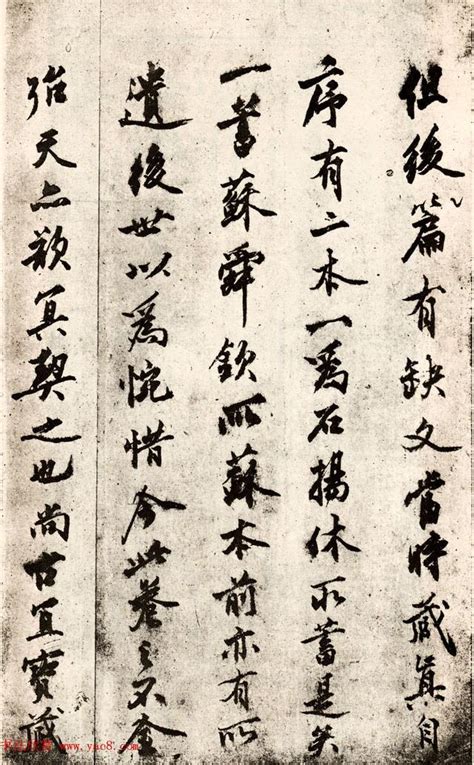 但後篇有缺文當時藏真自
序有二本一爲石揚休所蓄是矣
一蓄蘇舜欽所蘇本前亦有所
遺後世以爲惋惜今此卷之不全
殆天亦欲冥契之也尚古宜寶藏
www.yac8.com